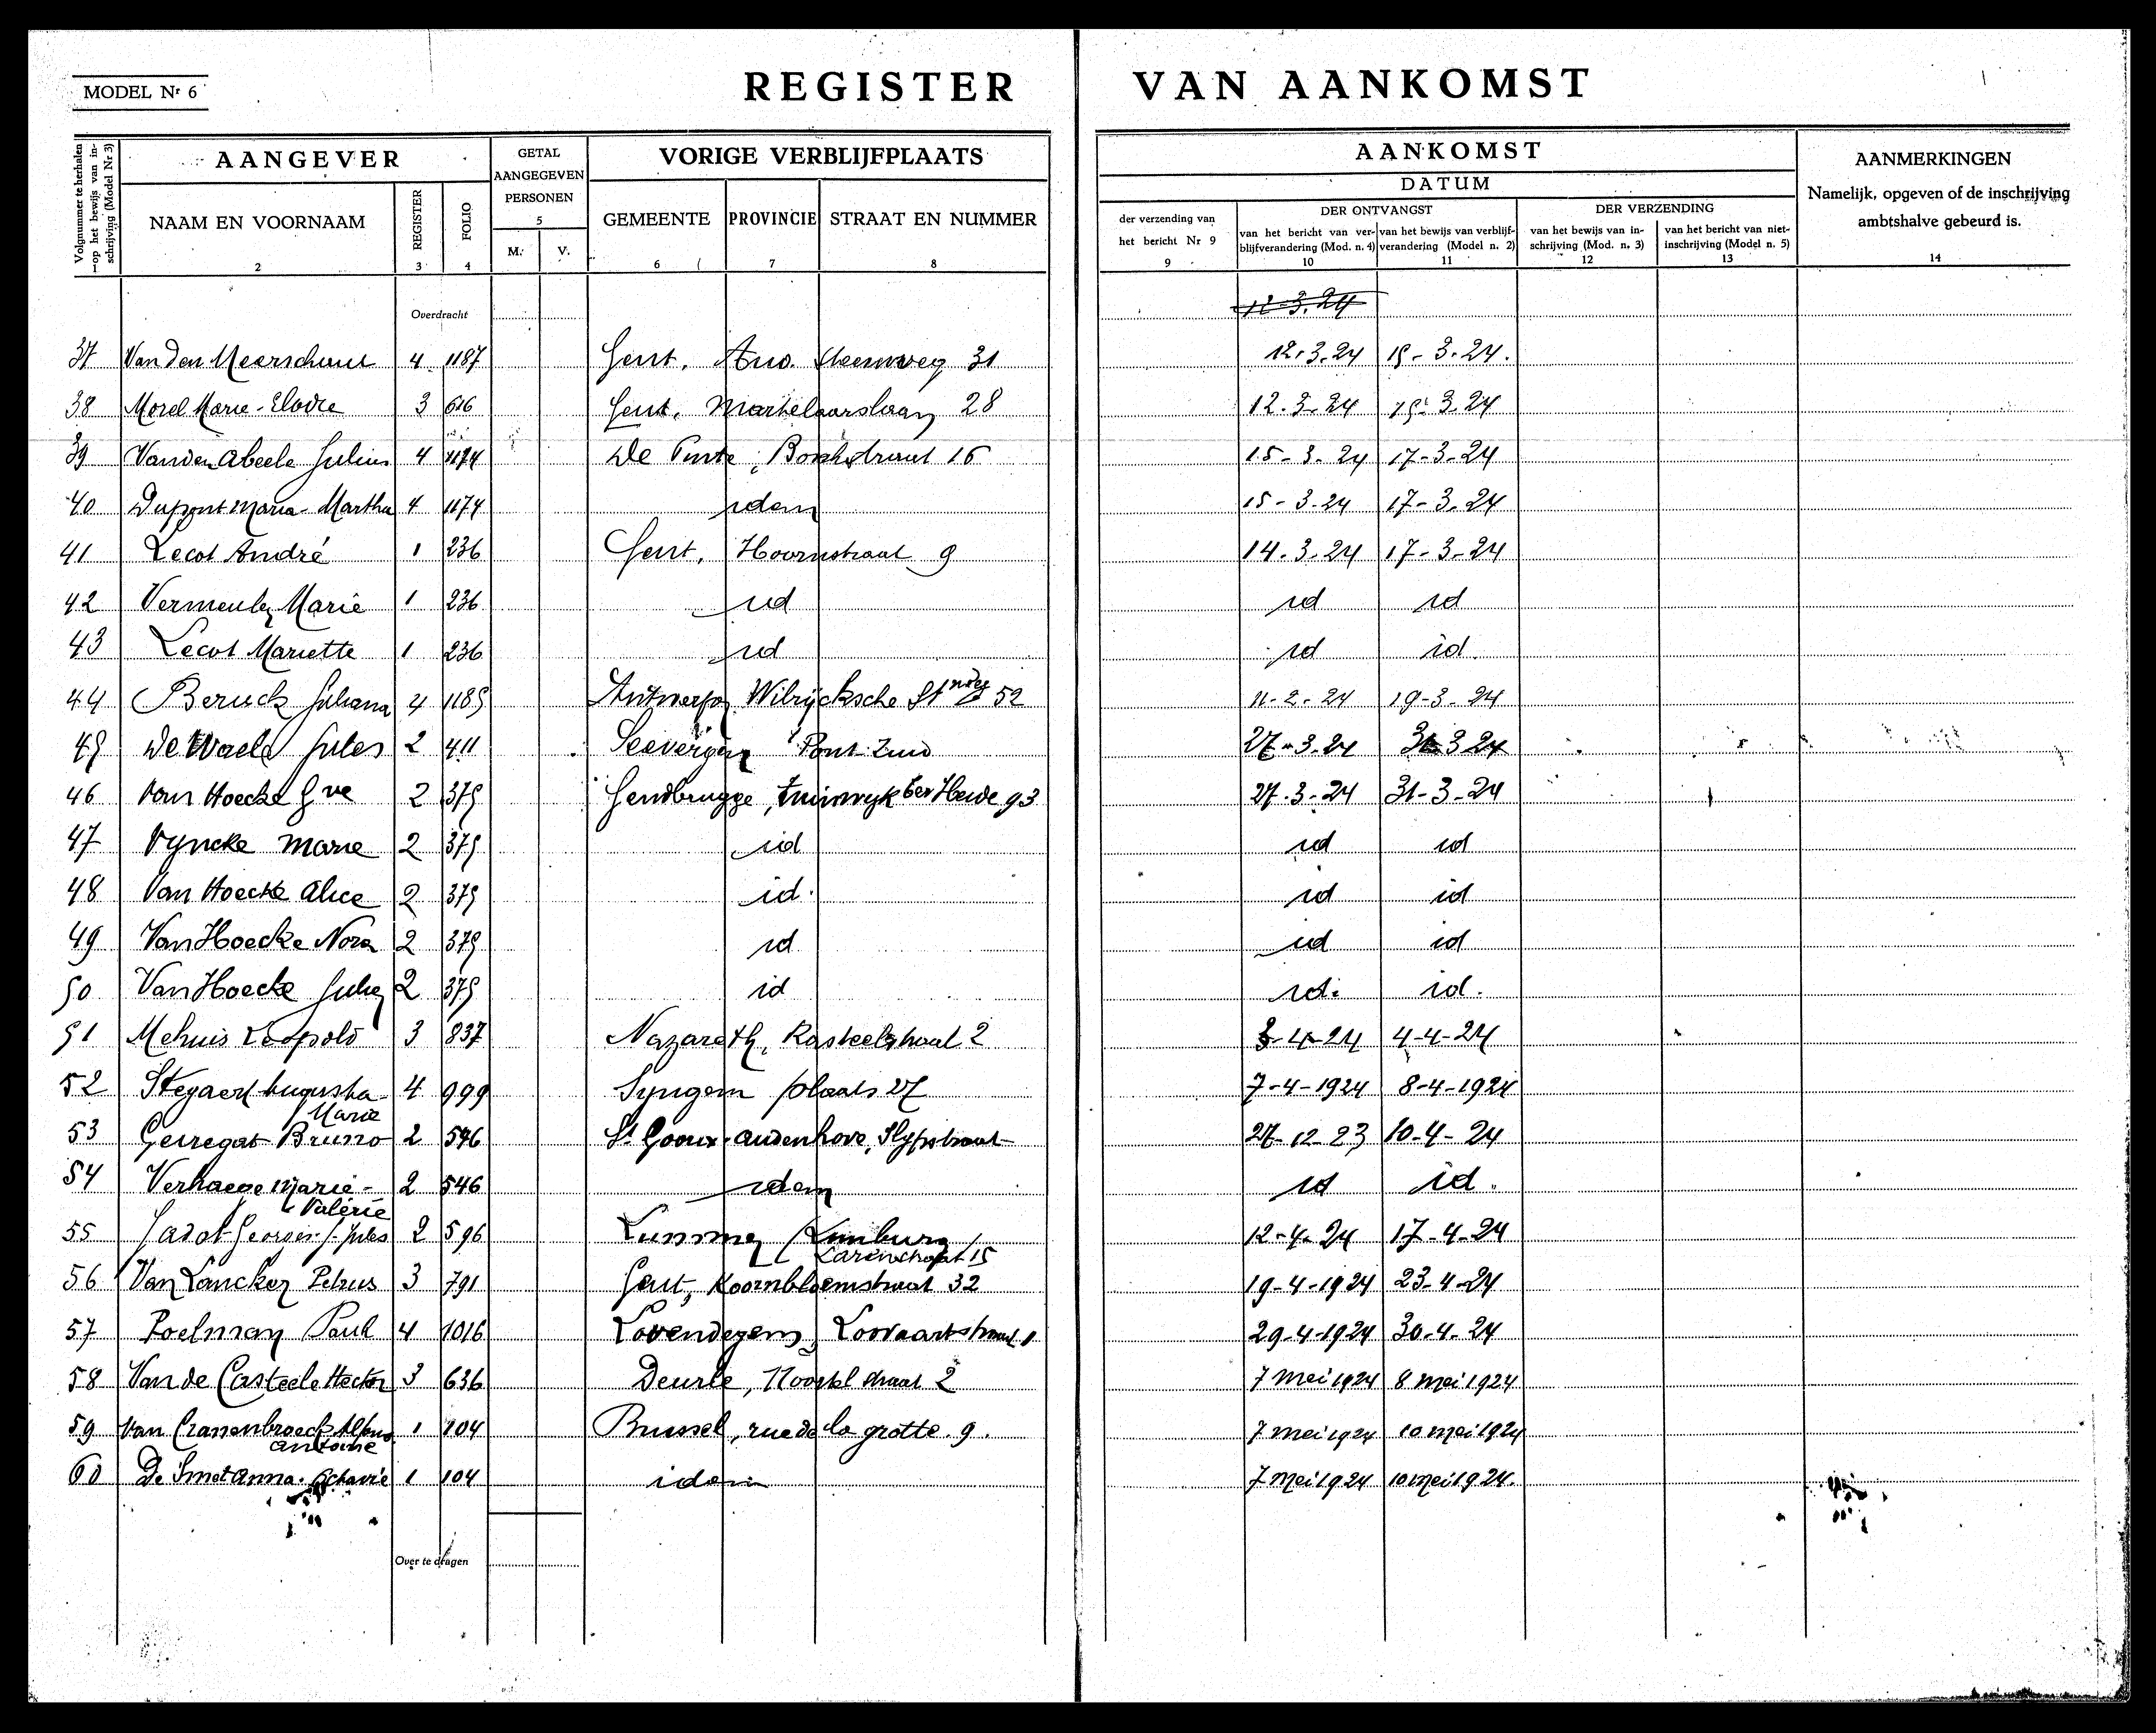 MODEL Nr 6
REGISTER VAN AANKOMST
Volgnummer te herhalen op het bewijs van inschrijving (Model Nr 3)
AANGEVER
GETAL AANGEGEVEN PERSONEN
VORIGE VERBLIJFPLAATS
AANKOMST
AANMERKINGEN
Namelijk, opgeven of de inschrijving ambtshalve gebeurd is.
DATUM
NAAM EN VOORNAAM
REGISTER
FOLIO
M. V.
GEMEENTE PROVINCIE STRAAT EN NUMMER
der verzending van het bericht Nr 9
DER ONTVANGST
van het bericht van verblijfverandering (Mod. n. 4)
van het bewijs van verblijfverandering (Model n. 2)
DER VERZENDING
van het bewijs van inschrijving (Mod. n. 3)
van het bericht van niet-inschrijving (Model n. 5)
1 2 3 4 5 6 7 8 9 10 11 12 13 14
Overdracht 12-3.24
37 Van den Meerschaut 4 1187 Gent. 31 12.3.24 15-3.24.
38 Morel Marie-Elodie 3 616 Gent. Martelaarslaan 28 12.3.24 15.3.24
39 Vanden Abeele Julius 4 1174 De Pinte, 16 15-3-24 17-3-24
40 Dupont Maria-Martha 4 1174 idem 15-3.24 17-3.24
41 Lecot André 1 236 Gent, Hoornstraat 9 14.3.24 17-3-24
42 Vermeulen Marie 1 236 id id id
43 Lecot Mariette 1 236 id id id.
44 Beruck Juliana 4 1185 Antwerpen Wilrijcksche St 52 11-2-24 19-3-24
45 De Waele Jules 2 411 Seevergem Pont-Zuid 27-3.24 31-3 24
46 Van Hoecke Gve 2 375 Gendbrugge, Tuinwyk ter Heide 93 27.3-24 31-3-24
47 Vyncke Marie 2 375 id id id
48 Van Hoecke Alice 2 375 id. id id
49 Van Hoecke Nora 2 375 id id id
50 Van Hoecke 2 375 id id. id.
51 Mehuis Leopold 3 837 Nazareth, Kasteelstraat 2 3-4-24 4-4-24
52 Steyaert Augusta- 4 999 Syngem plaats 27 7-4-1924 8-4-1924
Marie
53 Gerregat Bruno 2 546 St Goorix-audenhove, Slypstraat 27-12-23 10-4-24
54 Verhaege Marie- 2 546 idem id id.
Valérie
55 Jadot Georges-J.-Jules 2 596 Lummen Limburg 12-4-24 17-4-24
15
56 Van Lancker Petrus 3 791 Gent, Koornbloemstraat 32 19-4-1924 23-4-24
57 Poelman Paul 4 1016 Lovendegem, Lovaartstraat 1 29-4-1924 30-4-24
58 Van de Casteele Hector 3 636 Deurle, straat 2 7 mei 1924 8 mei 1924
59 Van Cranenbroeck Alfons 1 104 Brussel, rue de la grotte. 9. 7 mei 1924 10 mei 1924
antoine
60 De Smet Anna-Octavie 1 104 idem 7 mei 1924 10 mei 1924.
Over te dragen